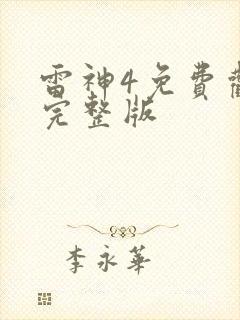 雷神4免費
完整版
李永華